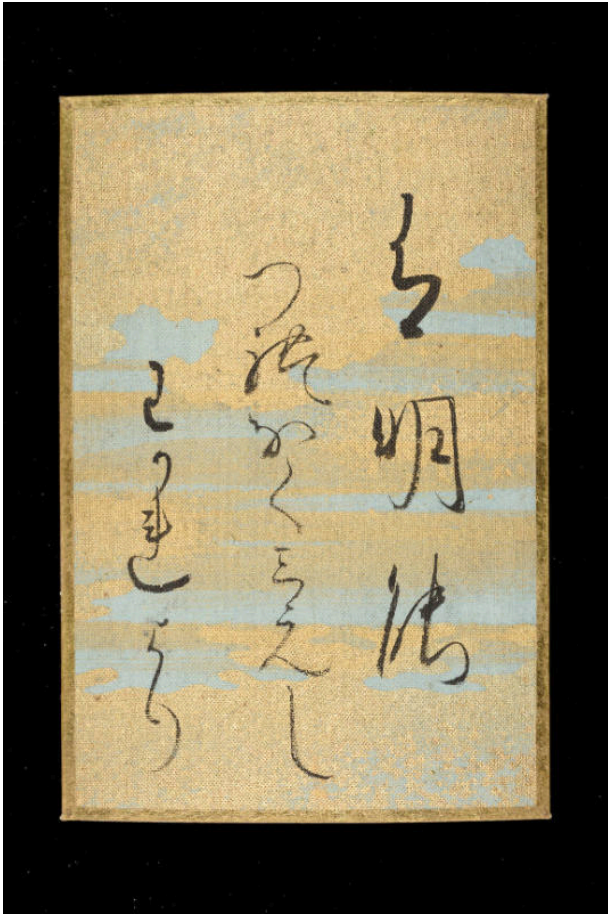 有明能
つれなくみえし
わかれより